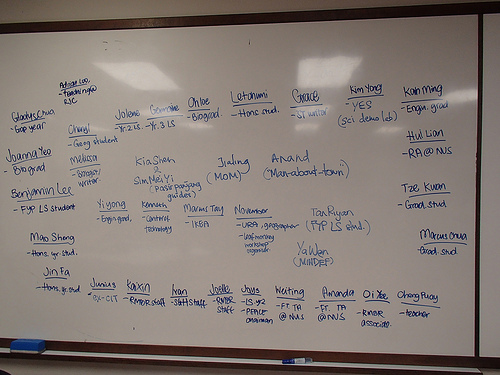 Gladys Chua
- Gap year
- Teaching @
RJC
Cheryl
- Geog student
Jolene
- Yr. 2 LS
Germaine
- Yr. 3 LS
Chloe
- Biograd
Letchumi
- Hons. stud.
Grace
Kim Yong
- YES
(sci demo lab)
Kah Ming
- Engin. grad
Joanna Yeo
- Biograd
Melissa
writer
Kia Shen
&
Sim Mei Yi
guides)
Jialing
(MOM)
Anand
("Man-about-town")
Hui Lian
- RA @ NUS
Benjamin Lee
- FYP LS student
Yi yong
- Engin. grad.
Kenneth
technology
Marcus Tay
- IKEA
November
- URA, geographer
workshop
organiser
Tan Riyan
(FYP LS stud.)
Tze Kwan
- Grad. stud
Mao Sheng
- Hons. yr. stud.
Ya Wen
(MINDEF)
Marcus Chua
- Grad. stud
Jin Fa
- Hons. yr. stud
Junius
ex-CJC
Kaixin
- RMBR staff
Ivan
- staff
Joelle
- RMBR
staff
Joys
- LS yr 2
- PEACE
chairman
Weiting
- FT. TA
@ NUS
Amanda
- FT. TA
@ NUS
- RMBR
associate.
- teacher